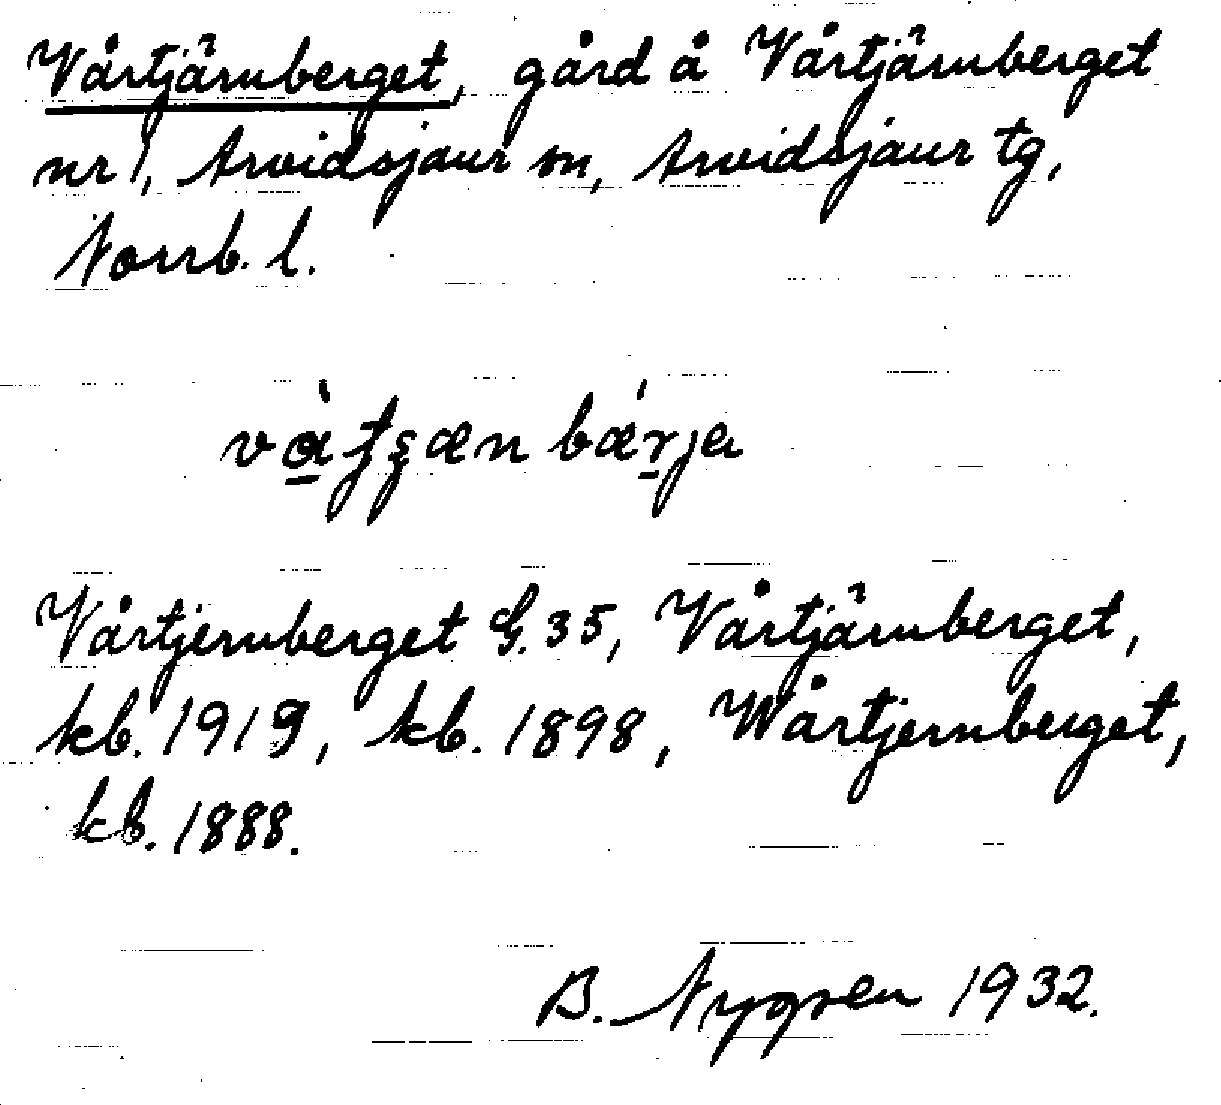 Vårtjärnberget, gård å Vårtjärnberget
nr 1, Arvidsjaur sn, Arvidsjaur tg,
Norrb. l.
Vårtjernberget G.35, Vårtjärnberget,
kb. 1919, kb. 1898, Wårtjernberget,
kb. 1888.
B. Nygren 1932.